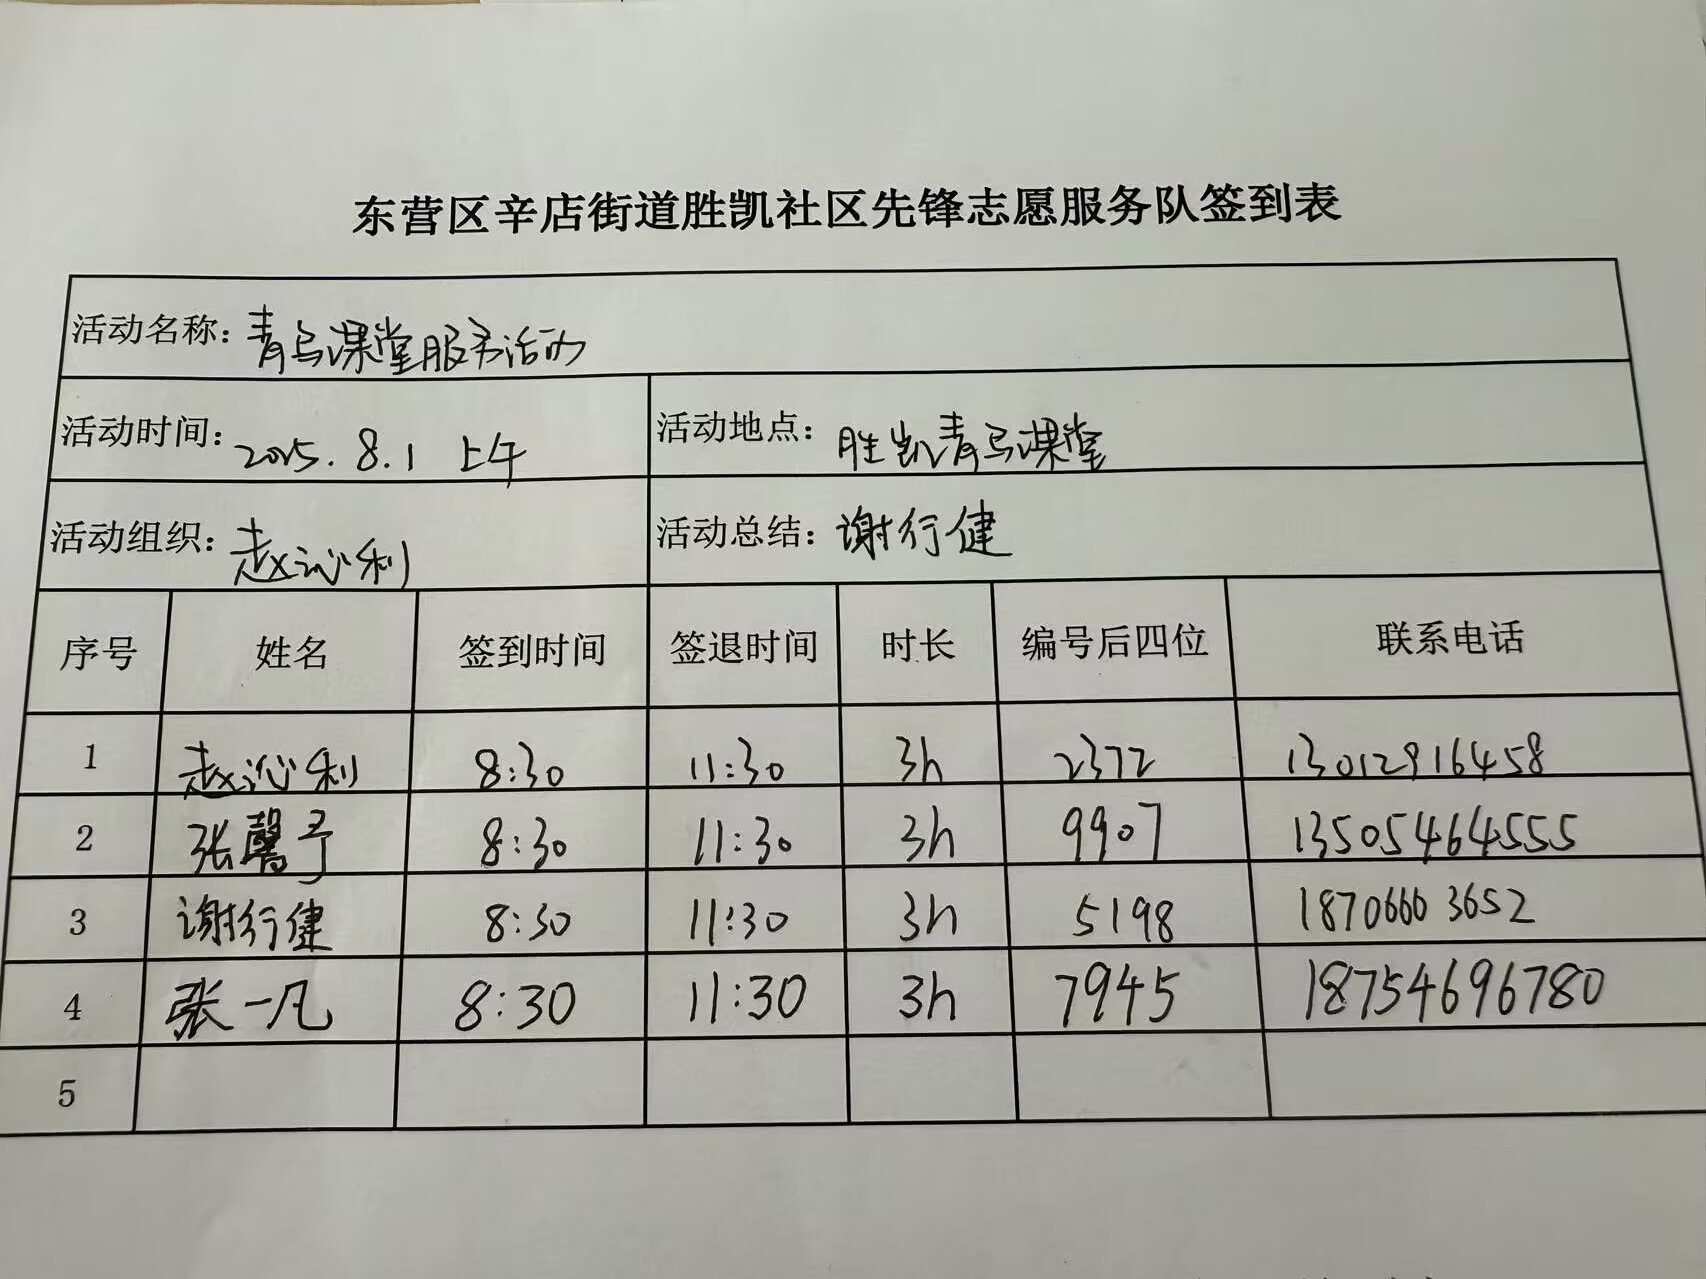 东营区辛店街道胜凯社区先锋志愿服务队签到表
活动名称：青鸟课堂服务活动
活动时间：2025.8.1 上午 活动地点：胜凯青鸟课堂
活动组织：赵沁利 活动总结：谢行健
序号 姓名 签到时间 签退时间 时长 编号后四位 联系电话
1 赵沁利 8:30 11:30 3h 2372 13012916458
2 张馨予 8:30 11:30 3h 9907 13505464555
3 谢行健 8:30 11:30 3h 5198 18706663652
4 张一凡 8:30 11:30 3h 7945 18754696780
5